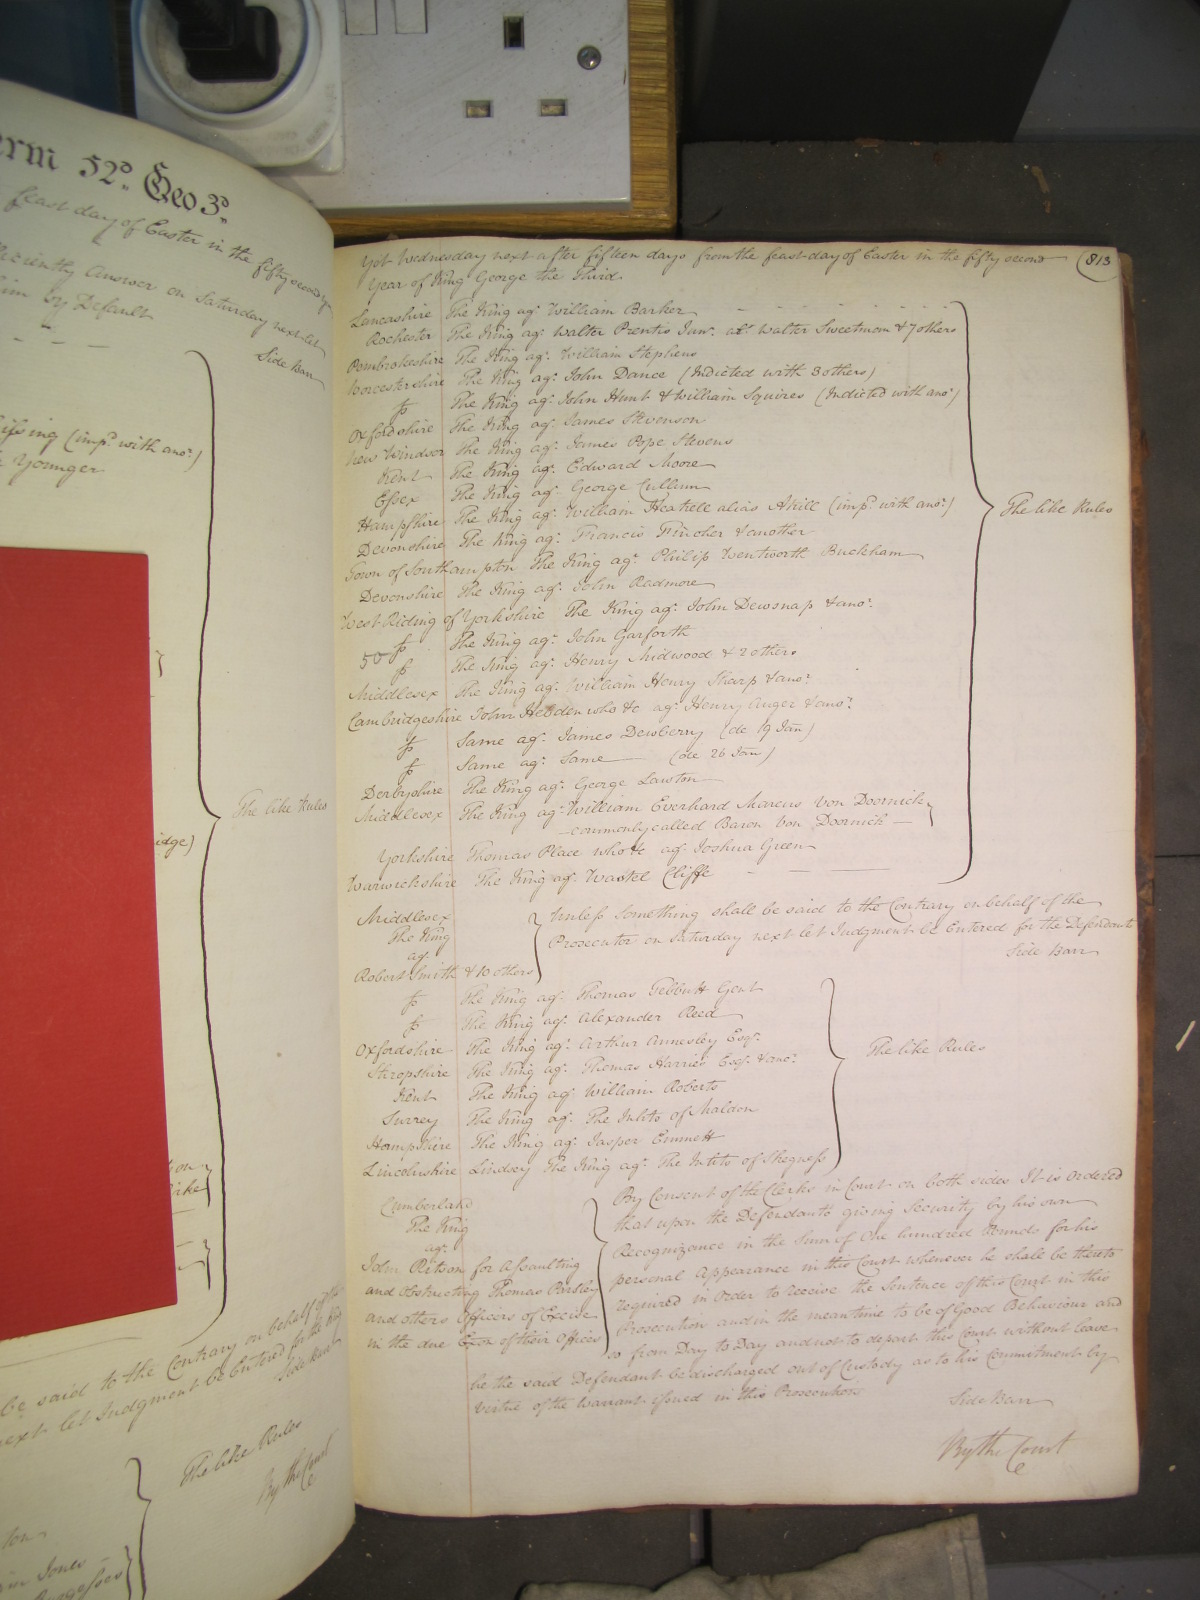 erm 52.° Geo 3.°
feast day of Easter in the fifty second
Answer on Saturday next let
him by Default
Side Barr
(imp.d with ano.r)
Younger
The like Rules
be said to the Contrary on behalf of the
next let Judgment be Entered for the King
Side Barr
The like Rules
By the Court
Jones
Burgesses
Yet Wednesday next after fifteen days from the feast day of Easter in the fifty second 813
Year of King George the Third.
Lancashire The King ag.t William Barker
Rochester The King ag.t Walter Prentis Jun.r ag.t Walter Sweetman & 7 others
Pembrokeshire The King ag.t William Stephens
Worcestershire The King ag.t John Dance (Indicted with 3 others)
The King ag.t John Hunt & William Squires (Indicted with ano.r)
Oxfordshire The King ag.t James Stevenson
New Windsor The King ag.t James Pope Stevens
Kent The King ag.t Edward Moore
Essex The King ag.t George Cullum
Hampshire The King ag.t William Heatrell alias Atrill (imp.d with ano.r)
Devonshire The King ag.t Francis Fincher & another
Town of Southampton The King ag.t Philip Wentworth Buckham
Devonshire The King ag.t John Radmore
West Riding of Yorkshire The King ag.t John Dewsnap & ano.r
The King ag.t John Garforth
50 The King ag.t Henry Midwood & 2 others
Middlesex The King ag.t William Henry Sharp & ano.r
Cambridgeshire John Hebden who &c ag.t Henry Auger & ano.r
Same ag.t James Dewberry (de 19 Jan)
Same ag.t Same (de 26 Jan)
Derbyshire The King ag.t George Lawton
Middlesex The King ag.t William Everhard Marcus Von Doornick
commonly called Baron Von Doornick
Yorkshire Thomas Place who &c ag.t Joshua Green
Warwickshire The King ag.t Wastel Cliffe
The like Rules
Middlesex
The King
ag.t
Robert Smith & 10 others
Unless something shall be said to the Contrary on behalf of the
Prosecutor on Saturday next let Judgment be Entered for the Defendant
Side Barr
The King ag.t Thomas Tebbutt Gent
The King ag.t Alexander Reed
Oxfordshire The King ag.t Arthur Annesley Esq.r
Shropshire The King ag.t Thomas Harries Esq.r & ano.r
Kent The King ag.t William Roberts
Surrey The King ag.t The Inhts of Maldon
Hampshire The King ag.t Jasper Emmett
Lincolnshire Lindsey The King ag.t The Inhts of Skegness
The like Rules
Cumberland
The King
ag.t
John Ritson for assaulting
and obstructing Thomas Pardey
and others Officers of Excise
in the due Exon of their Offices
By Consent of the Clerks in Court on both sides It is Ordered
that upon the Defendants giving Security by his own
Recognizance in the Sum of One hundred Pounds for his
personal Appearance in this Court whenever he shall be thereto
required in Order to receive the Sentence of this Court in this
Prosecution and in the meantime to be of Good Behaviour and
so from Day to Day and not to depart this Court without leave
he the said Defendant be discharged out of Custody as to his Commitment by
virtue of the Warrant issued in this Prosecution
Side Barr
By the Court